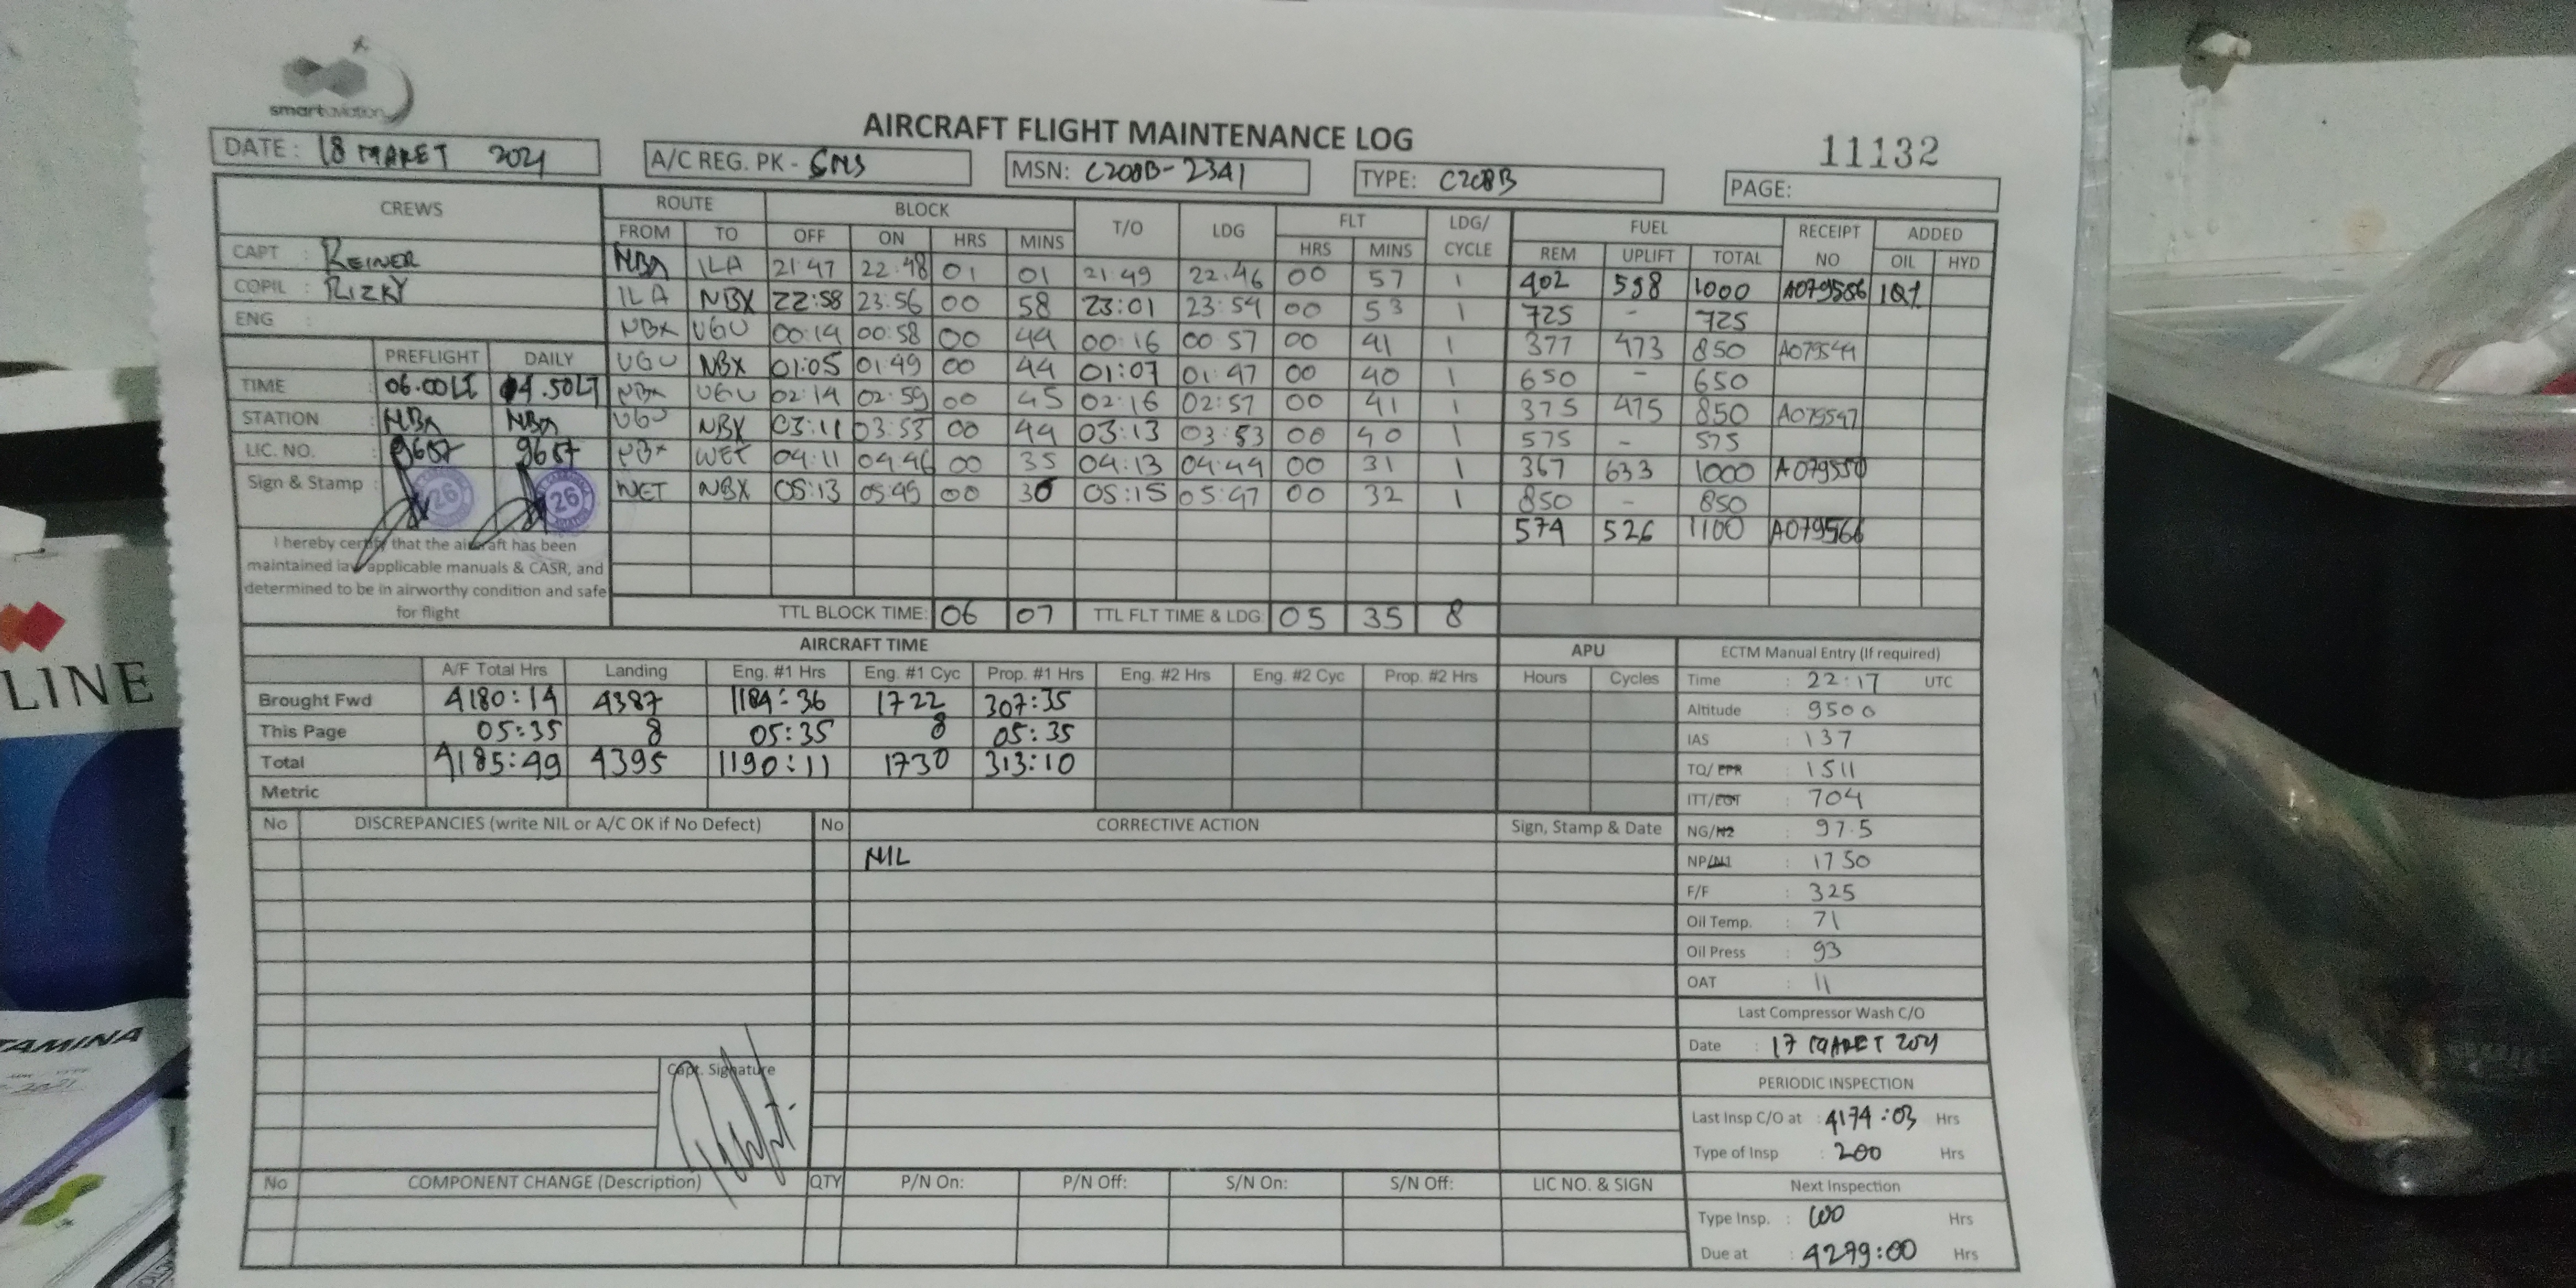 smartaviation
AIRCRAFT FLIGHT MAINTENANCE LOG
11132
DATE : 18 MARET 2021
A/C REG. PK - SNS
MSN: C208B-2341
TYPE: C208B
PAGE:
CREWS
ROUTE BLOCK T/O LDG FLT LDG/ CYCLE FUEL RECEIPT NO ADDED
FROM TO OFF ON HRS MINS HRS MINS REM UPLIFT TOTAL OIL HYD
CAPT : REINER
COPIL : RIZKY
ENG :
NBX ILA 21:47 22:48 01 01 21:49 22:46 00 57 1 402 598 1000 A079586 1Qt
ILA NBX 22:58 23:56 00 58 23:01 23:54 00 53 1 725 - 725
NBX UGU 00:14 00:58 00 44 00:16 00:57 00 41 1 377 473 850 A079544
UGU NBX 01:05 01:49 00 44 01:07 01:47 00 40 1 650 - 650
NBX UGU 02:14 02:59 00 45 02:16 02:57 00 41 1 375 475 850 A079547
UGU NBX 03:11 03:53 00 44 03:13 03:53 00 40 1 575 - 575
NBX WET 04:11 04:46 00 35 04:13 04:44 00 31 1 367 633 1000 A079550
WET NBX 05:13 05:49 00 36 05:15 05:47 00 32 1 850 - 850
574 526 1100 A079566
PREFLIGHT DAILY
TIME : 06.00LT 04.50LT
STATION : NBX NBX
LIC. NO. : 9687 9687
Sign & Stamp :
26 26
I hereby certify that the aircraft has been
maintained iaw applicable manuals & CASR, and
determined to be in airworthy condition and safe
for flight
TTL BLOCK TIME: 06 07 TTL FLT TIME & LDG: 05 35 8
AIRCRAFT TIME
APU
A/F Total Hrs Landing Eng. #1 Hrs Eng. #1 Cyc Prop. #1 Hrs Eng. #2 Hrs Eng. #2 Cyc Prop. #2 Hrs Hours Cycles
Brought Fwd 4180:14 4387 1184:36 1722 307:35
This Page 05:35 8 05:35 8 05:35
Total 4185:49 4395 1190:11 1730 313:10
Metric
ECTM Manual Entry (If required)
Time : 22:17 UTC
Altitude : 9500
IAS : 137
TQ/EPR : 1511
ITT/EGT : 704
NG/N2 : 97.5
NP/N1 : 1750
F/F : 325
Oil Temp. : 71
Oil Press : 93
OAT : 11
Last Compressor Wash C/O
Date : 17 MARET 2021
PERIODIC INSPECTION
Last Insp C/O at : 4174:03 Hrs
Type of Insp : 200 Hrs
Next Inspection
Type Insp. : 100 Hrs
Due at : 4279:00 Hrs
No DISCREPANCIES (write NIL or A/C OK if No Defect) No CORRECTIVE ACTION Sign, Stamp & Date
NIL
Capt. Signature
No COMPONENT CHANGE (Description) QTY P/N On: P/N Off: S/N On: S/N Off: LIC NO. & SIGN
LINE
TAMINA